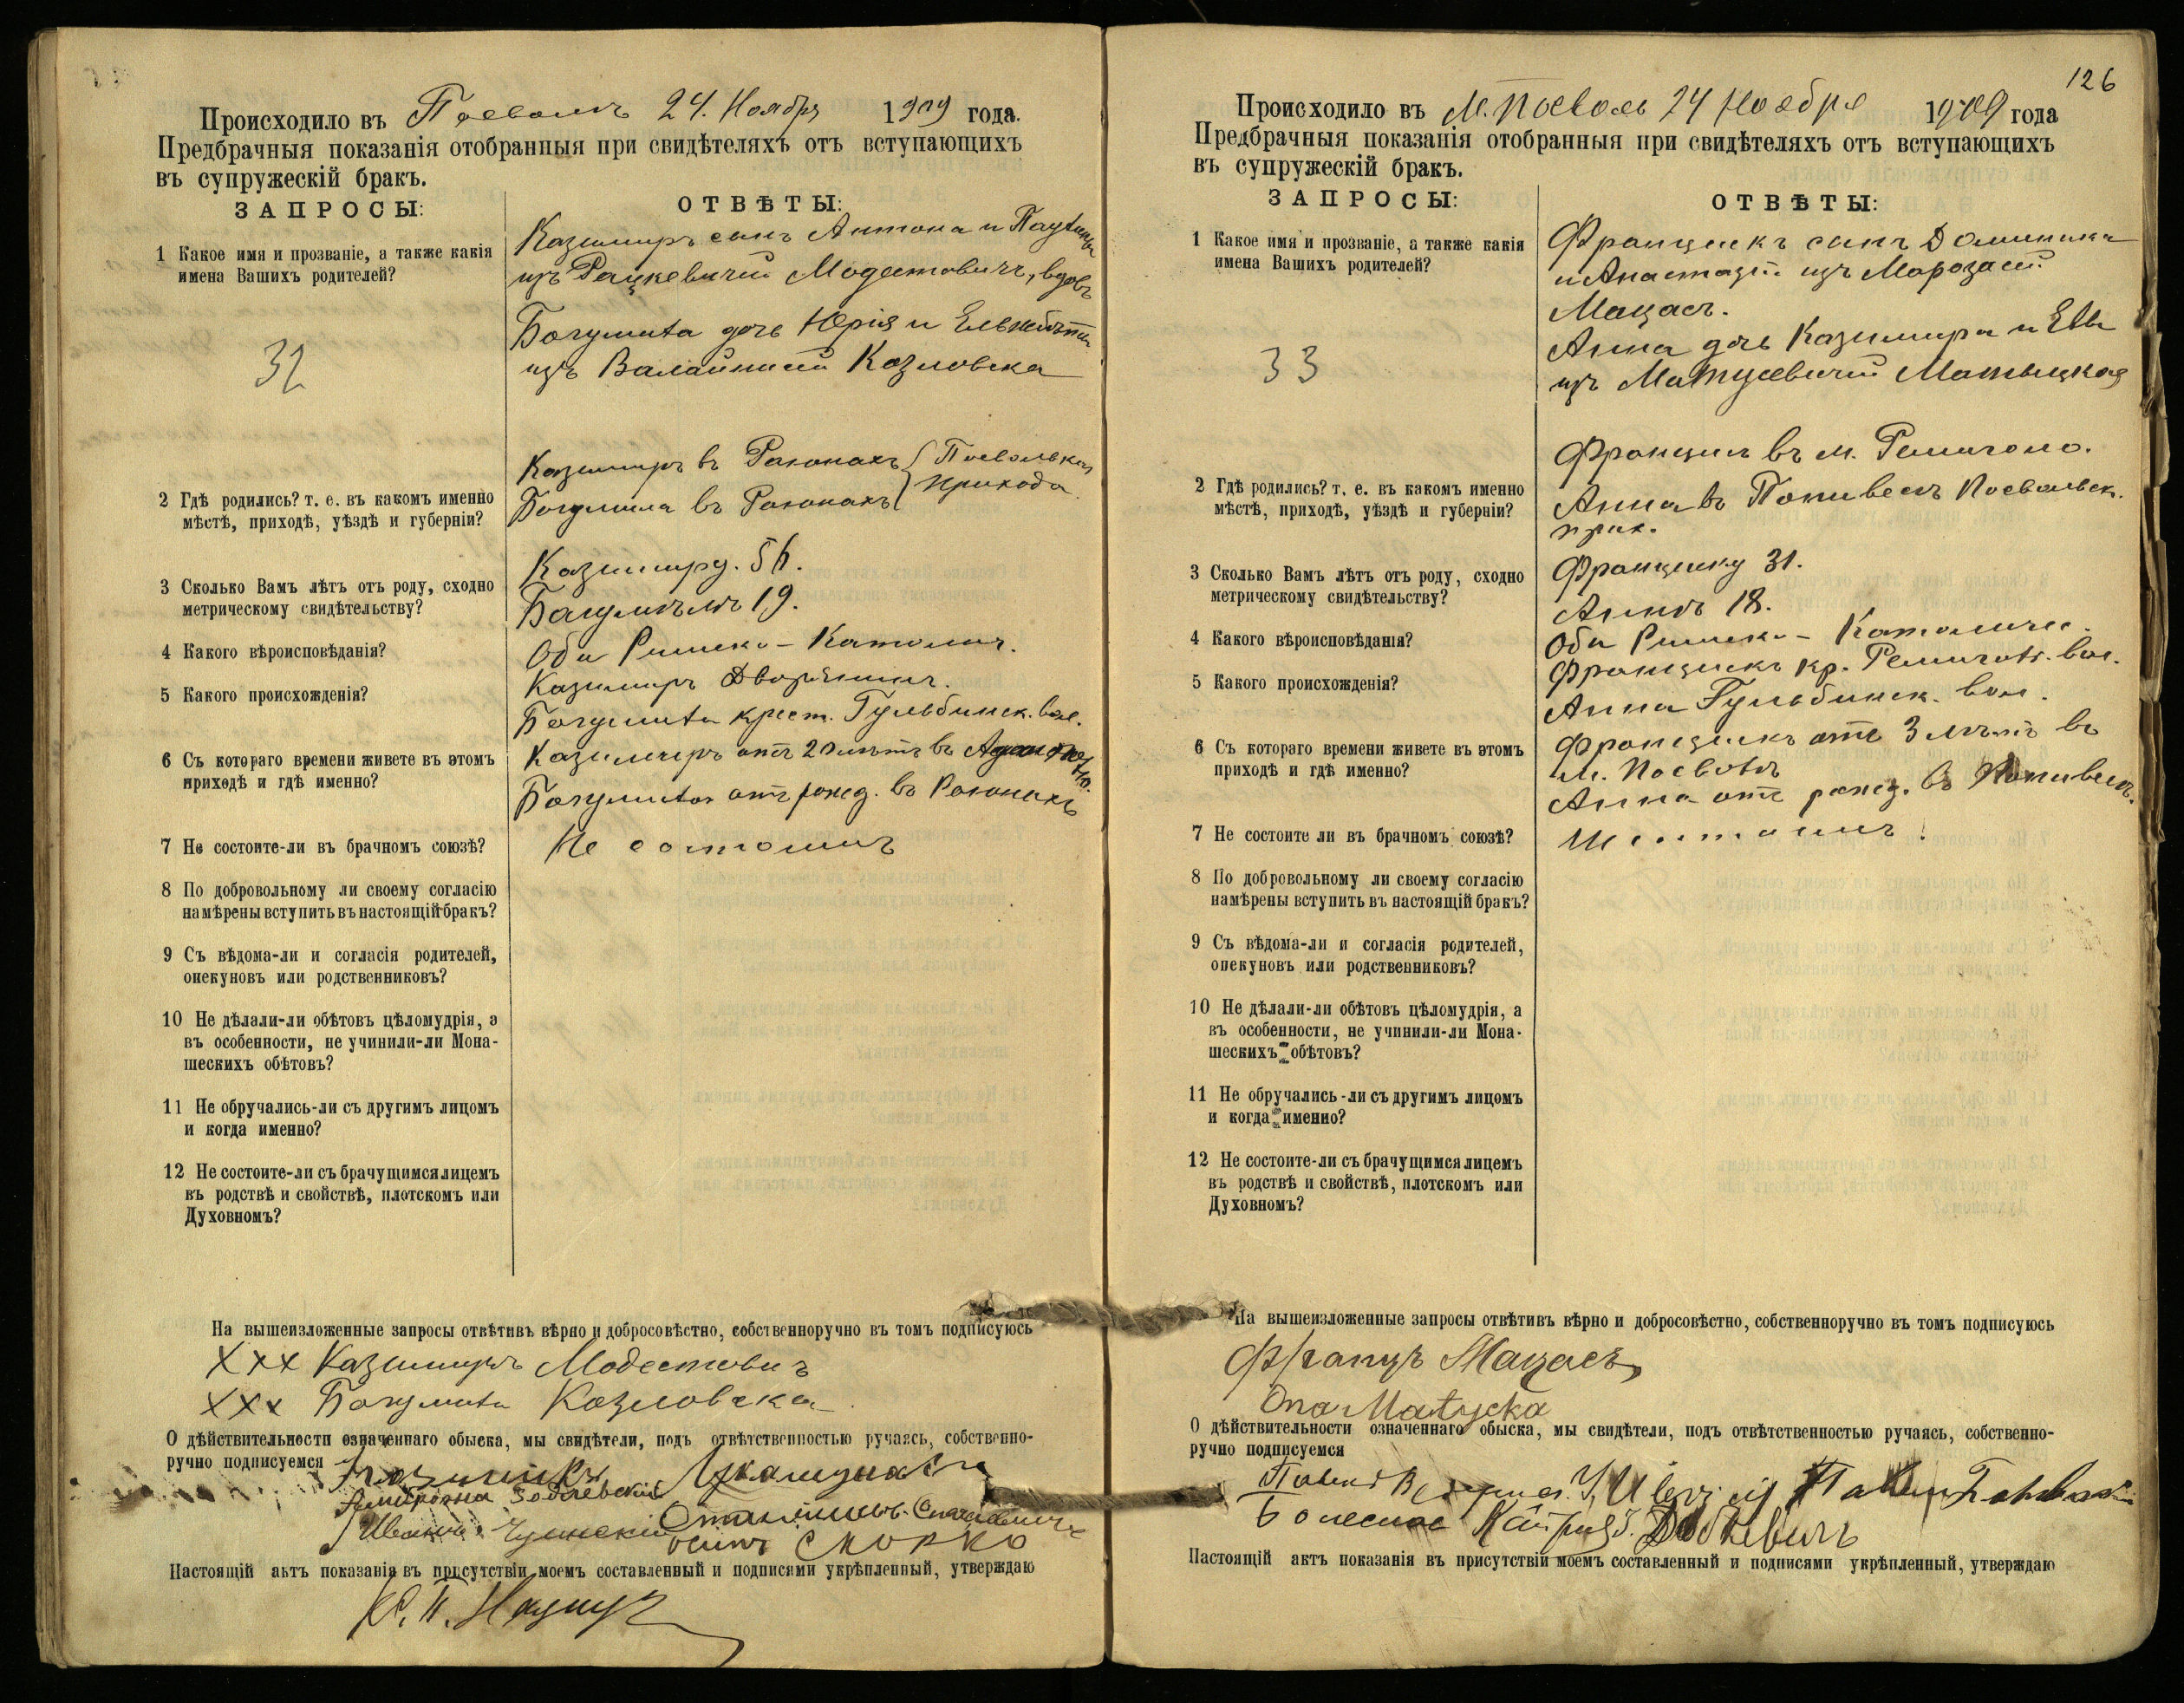 Происходило въ Поеволѣ 24. Ноября 1909 года.
Предбрачныя показанія отобранныя при свидѣтеляхъ отъ вступающихъ
въ супружескій бракъ.
ЗАПРОСЫ:
ОТВѢТЫ:
1 Какое имя и прозваніе, а также какія
имена Вашихъ родителей?
Казимиръ сынъ Антона и Паулины
изъ Рацкевичей Модестовичъ, вдовъ
Богумила дочь Юрія и Ельжбѣты
изъ Валайтисей Козловска
32
2 Гдѣ родились? т. е. въ какомъ именно
мѣстѣ, приходѣ, уѣздѣ и губерніи?
Казимиръ въ Раюнахъ Поевольскаго
Богумила въ Раюнахъ прихода
3 Сколько Вамъ лѣтъ отъ роду, сходно
метрическому свидѣтельству?
Казимиру. 56.
Богумилѣ 19.
4 Какого вѣроисповѣданія?
Оба Римско-Католич.
5 Какого происхожденія?
Казимиръ Дворянинъ.
Богумила крест. Гульбинск. вол.
6 Съ котораго времени живете въ этомъ
приходѣ и гдѣ именно?
Казимиръ отъ 20 лѣтъ въ
Богумила отъ рожд. въ Раюнахъ
7 Не состоите-ли въ брачномъ союзѣ?
Не состоимъ
8 По добровольному ли своему согласію
намѣрены вступить въ настоящій бракъ?
9 Съ вѣдома-ли и согласія родителей,
опекуновъ или родственниковъ?
10 Не дѣлали-ли обѣтовъ цѣломудрія, а
въ особенности, не учинили-ли Мона-
шескихъ обѣтовъ?
11 Не обручались-ли съ другимъ лицомъ
и когда именно?
12 Не состоите-ли съ брачущимся лицемъ
въ родствѣ и свойствѣ, плотскомъ или
Духовномъ?
На вышеизложенные запросы отвѣтивъ вѣрно и добросовѣстно, собственноручно въ томъ подписуюсь
ххх Казимиръ Модестовичъ
ххх Богумила Козловска
О дѣйствительности означеннаго обыска, мы свидѣтели, подъ отвѣтственностью ручаясь, собственно-
ручно подписуемся
Иванъ
Настоящій актъ показанія въ присутствіи моемъ составленный и подписями укрѣпленный, утверждаю
126
Происходило въ М. Поеволь 24 Ноября 1909 года
Предбрачныя показанія отобранныя при свидѣтеляхъ отъ вступающихъ
въ супружескій бракъ.
ЗАПРОСЫ:
ОТВѢТЫ:
1 Какое имя и прозваніе, а также какія
имена Вашихъ родителей?
Францискъ сынъ Доминика
и Анастазіи изъ Морозасей
Мацасъ.
Анна дочь Казимира и Евы
изъ Матусевичей
33
2 Гдѣ родились? т. е. въ какомъ именно
мѣстѣ, приходѣ, уѣздѣ и губерніи?
въ м. Ремиголо.
Анна въ Попивесъ Поевольск.
прих.
3 Сколько Вамъ лѣтъ отъ роду, сходно
метрическому свидѣтельству?
Франциску 31.
Аннѣ 18.
4 Какого вѣроисповѣданія?
Оба Римско-Католичес.
5 Какого происхожденія?
Францискъ кр. Ремигол. вол.
Анна Гульбинск. вол.
6 Съ котораго времени живете въ этомъ
приходѣ и гдѣ именно?
Францискъ отъ 3 лѣтъ въ
м. Поеволѣ
Анна отъ рожд. въ Попивесъ.
7 Не состоите ли въ брачномъ союзѣ?
8 По добровольному ли своему согласію
намѣрены вступить въ настоящій бракъ?
9 Съ вѣдома-ли и согласія родителей,
опекуновъ или родственниковъ?
10 Не дѣлали-ли обѣтовъ цѣломудрія, а
въ особенности, не учинили-ли Мона-
шескихъ обѣтовъ?
11 Не обручались-ли съ другимъ лицомъ
и когда именно?
12 Не состоите-ли съ брачущимся лицемъ
въ родствѣ и свойствѣ, плотскомъ или
Духовномъ?
На вышеизложенные запросы отвѣтивъ вѣрно и добросовѣстно, собственноручно въ томъ подписуюсь
Францъ Мацасъ
О дѣйствительности означеннаго обыска, мы свидѣтели, подъ отвѣтственностью ручаясь, собственно-
ручно подписуемся
Настоящій актъ показанія въ присутствіи моемъ составленный и подписями укрѣпленный, утверждаю